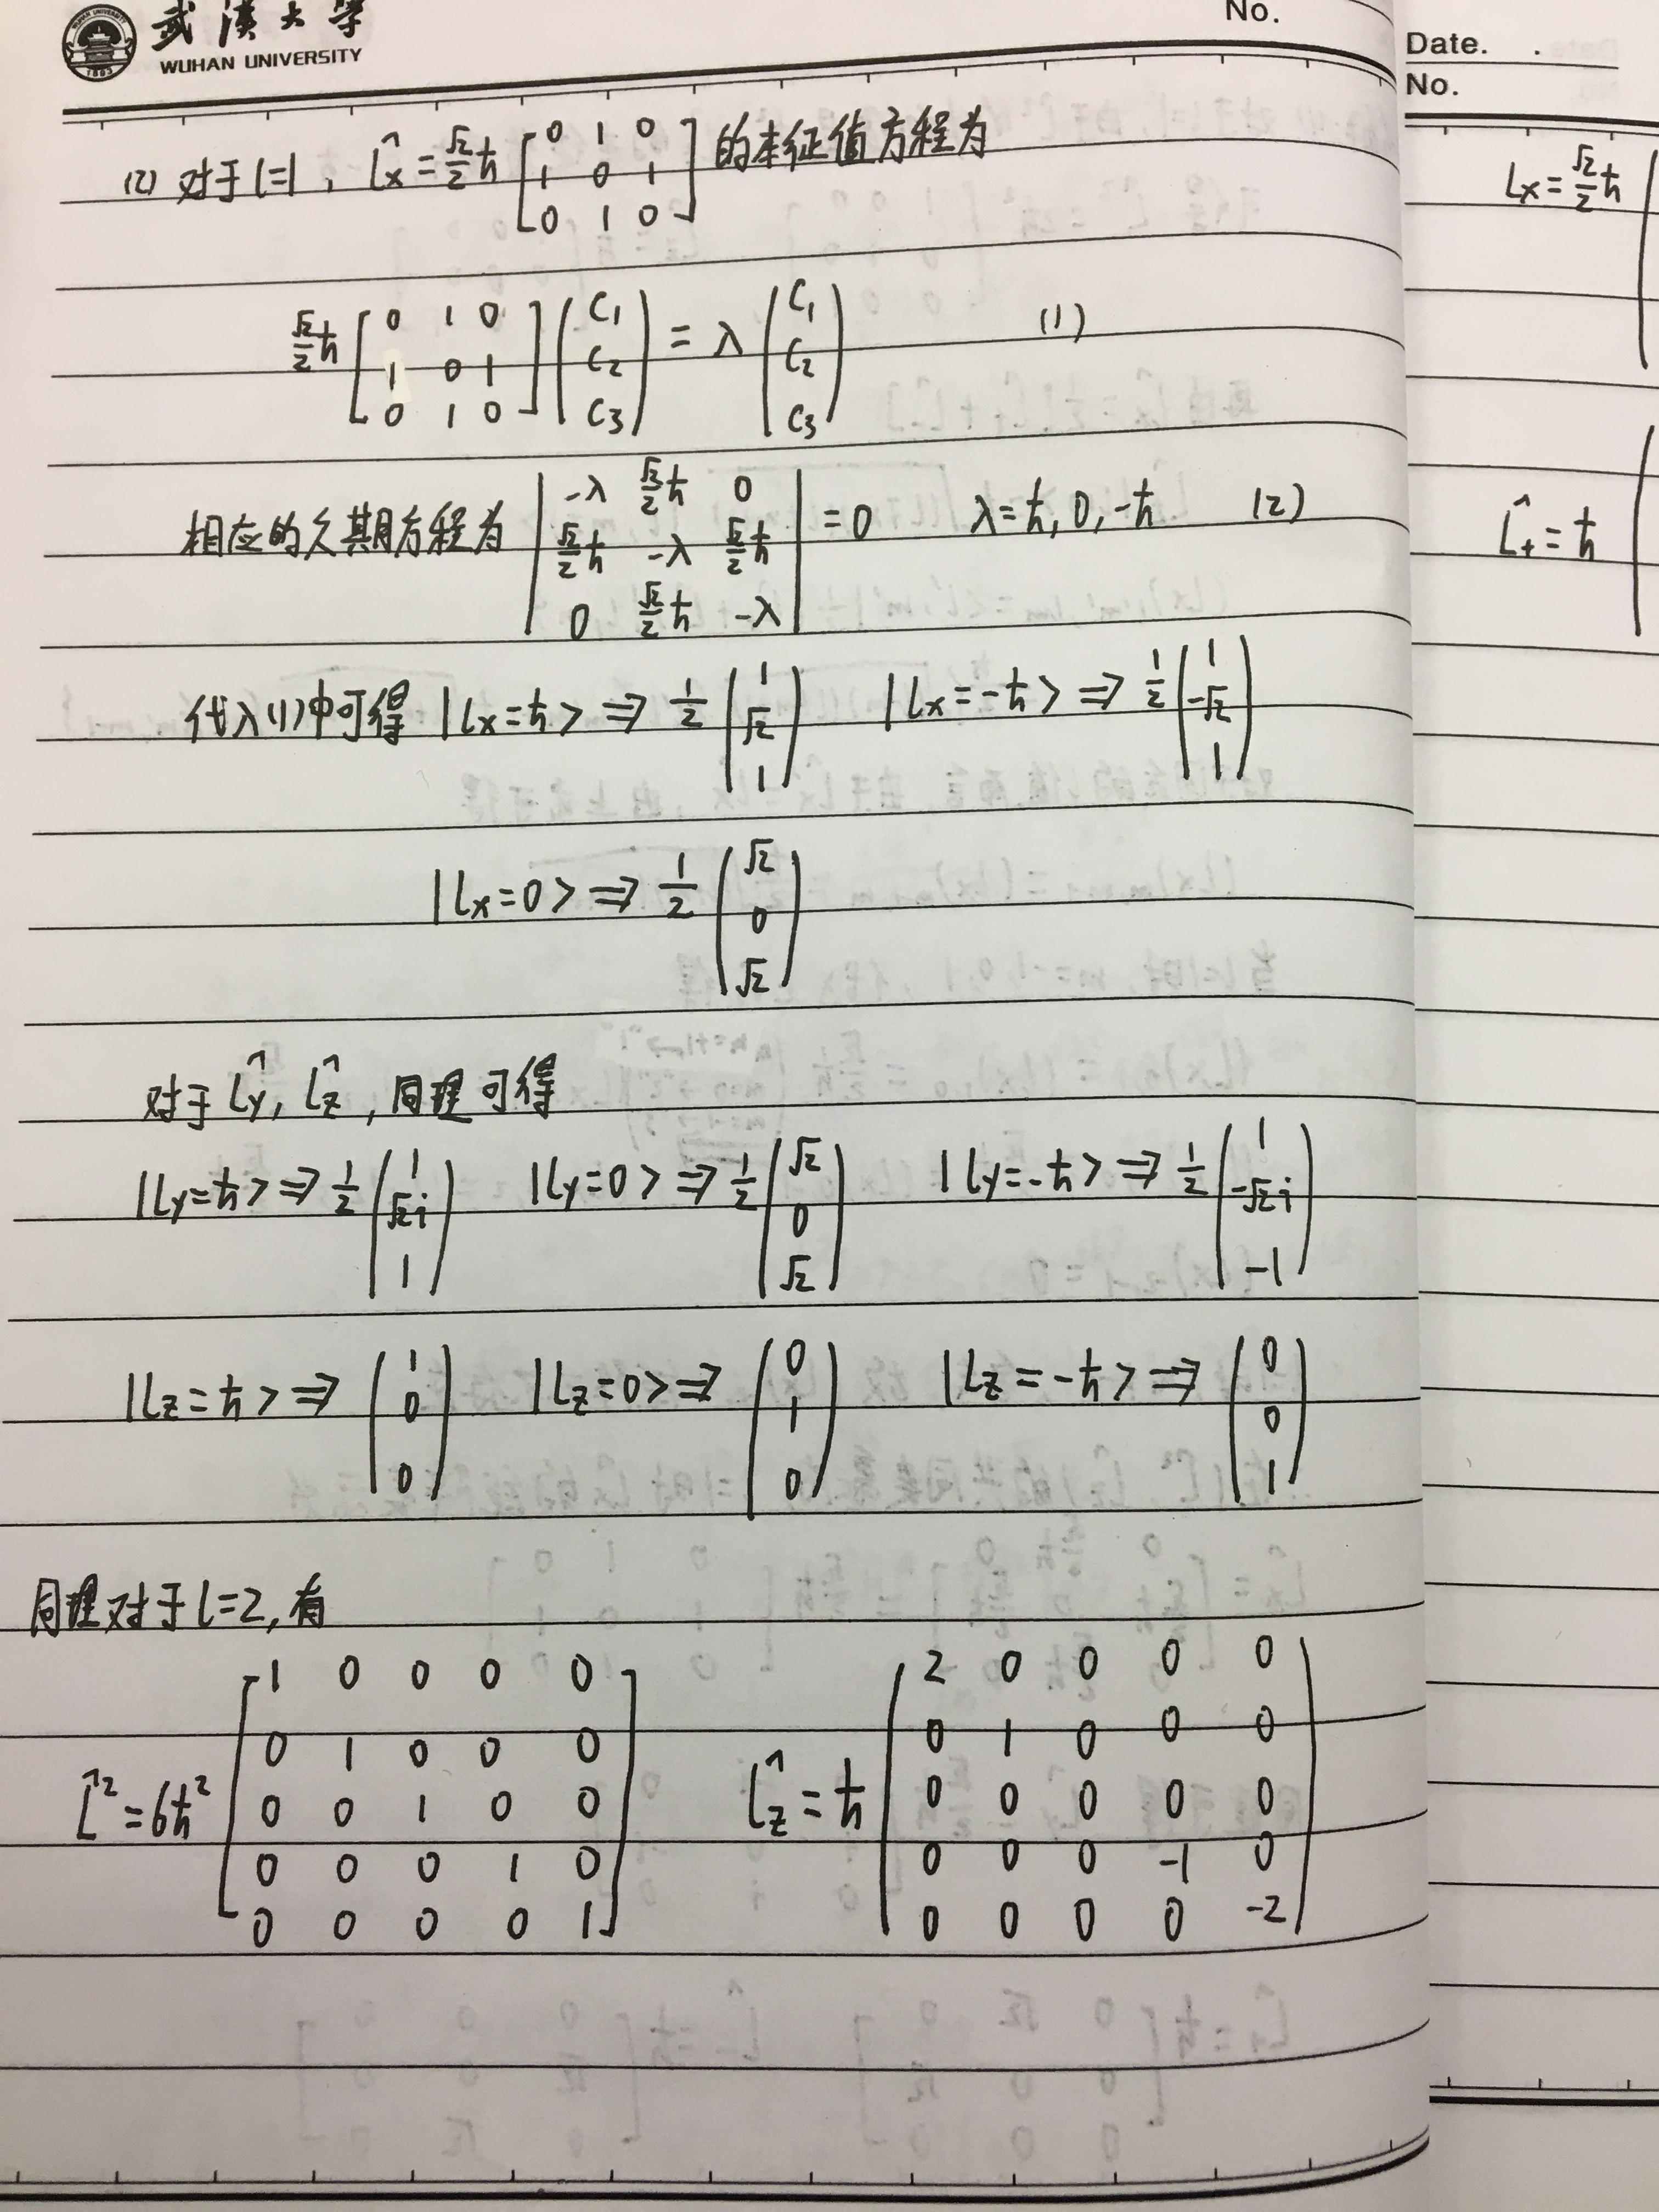 武漢大学
WUHAN UNIVERSITY
1893
No.
Date. .
No.
(2) 对于l=1, L̂x = √2/2 ħ [0 1 0; 1 0 1; 0 1 0] 的本征值方程为
√2/2 ħ [0 1 0; 1 0 1; 0 1 0] (C1; C2; C3) = λ (C1; C2; C3) (1)
相应的久期方程为 |-λ √2/2ħ 0; √2/2ħ -λ √2/2ħ; 0 √2/2ħ -λ| = 0 λ=ħ, 0, -ħ (2)
代入(1)中可得 |Lx=ħ> ⇒ 1/2 (1; √2; 1) |Lx=-ħ> ⇒ 1/2 (1; -√2; 1)
|Lx=0> ⇒ 1/2 (√2; 0; √2)
对于 L̂y, L̂z, 同理可得
|Ly=ħ> ⇒ 1/2 (1; √2i; 1) |Ly=0> ⇒ 1/2 (√2; 0; √2) |Ly=-ħ> ⇒ 1/2 (1; -√2i; -1)
|Lz=ħ> ⇒ (1; 0; 0) |Lz=0> ⇒ (0; 1; 0) |Lz=-ħ> ⇒ (0; 0; 1)
同理对于l=2, 有
L̂² = 6ħ² [1 0 0 0 0; 0 1 0 0 0; 0 0 1 0 0; 0 0 0 1 0; 0 0 0 0 1] L̂z = ħ (2 0 0 0 0; 0 1 0 0 0; 0 0 0 0 0; 0 0 0 -1 0; 0 0 0 0 -2)
Lx = √2/2 ħ
L̂+ = ħ